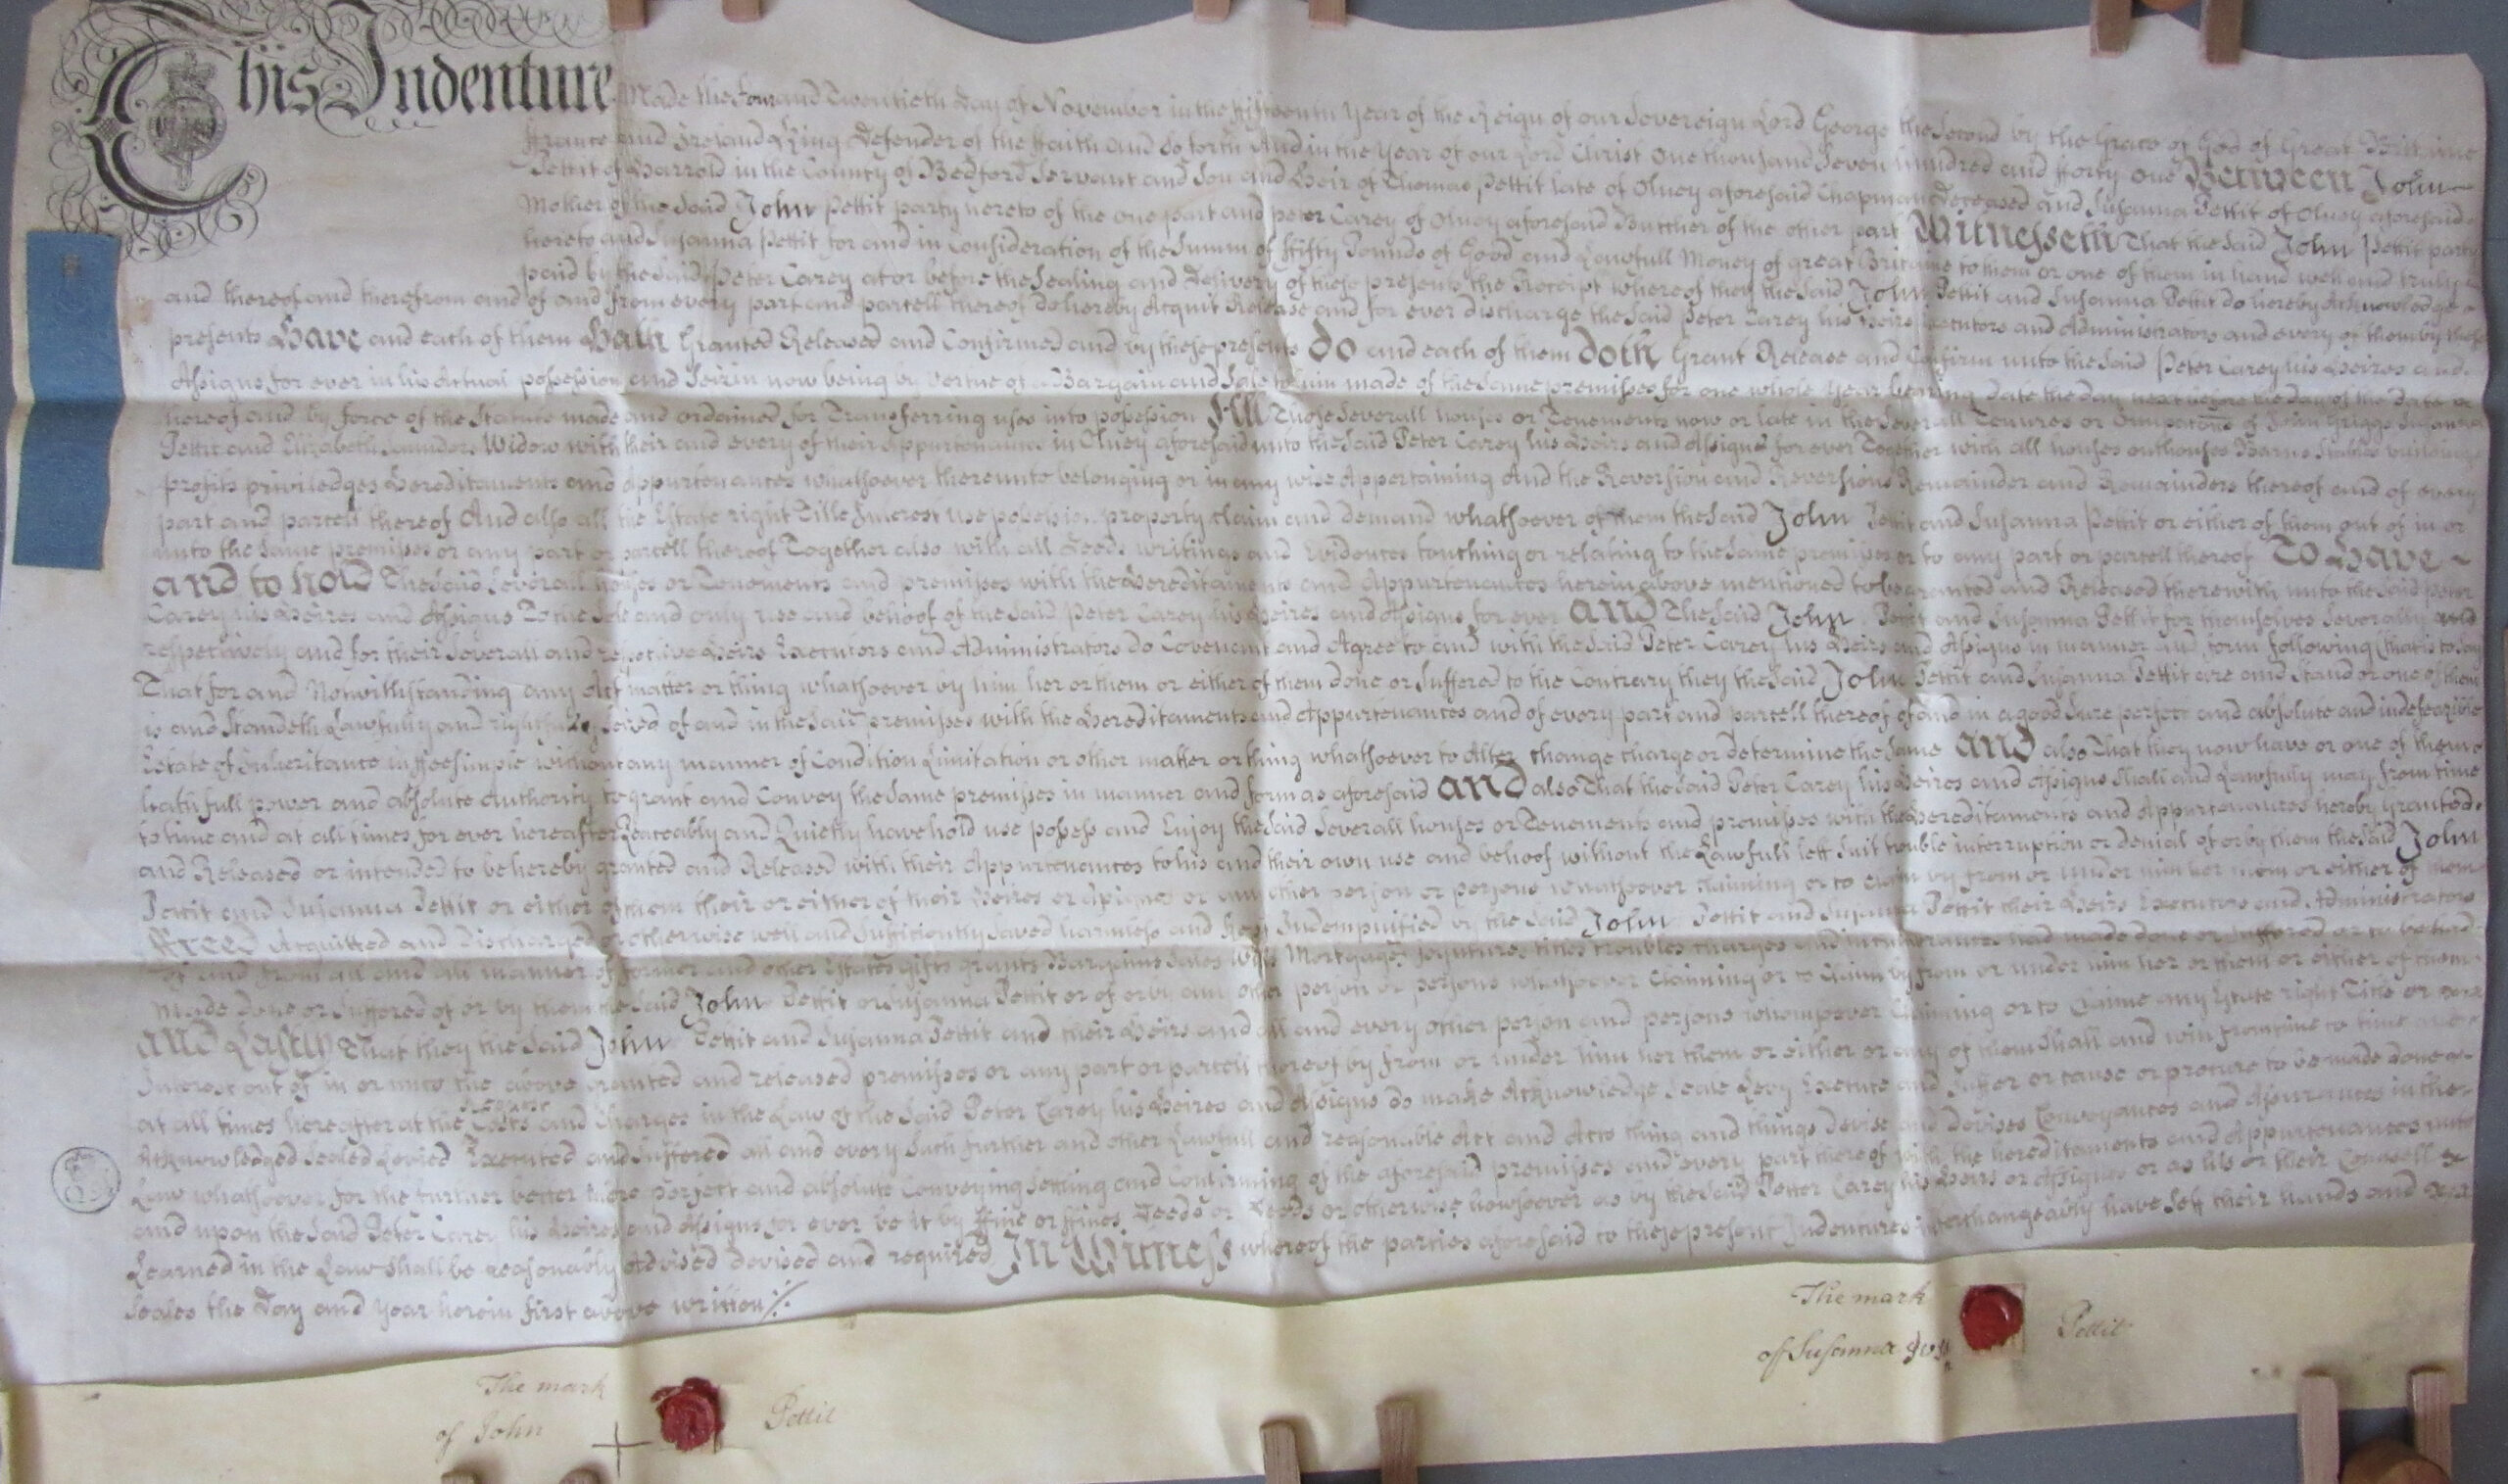 This Indenture Made the Four and Twentieth Day of November in the fifteenth Year of the Reign of our Sovereign Lord George the Second by the Grace of God of Great Brittaine
ffrance and Ireland King Defender of the ffaith and so forth And in the Year of our Lord Christ One thousand Seven hundred and fforty One Between John
Pettit of Harrold in the County of Bedford Servant and Son and Heir of Thomas Pettit late of Olney aforesaid Chapman Deceased and Susanna Pettit of Olney aforesaid
Mother of the said John Pettit party hereto of the one part and Peter Carey of Olney aforesaid Butcher of the other part Witnesseth That the said John Pettit party
hereto and Susanna Pettit for and in Consideration of the Summ of ffifty Pounds of Good and Lawfull Money of great Britaine to them or one of them in hand well and truly
paid by the said Peter Carey at or before the Sealing and Delivery of these presents the Receipt whereof they the said John Pettit and Susanna Pettit do hereby Acknowledge
and thereof and therefrom and of and from every part and parcell thereof do hereby Acquit Release and for ever discharge the said Peter Carey his Heirs Executors and Administrators and every of them by these
presents Have and each of them Hath Granted Released and Confirmed and by these presents Do and each of them Doth Grant Release and Confirm unto the said Peter Carey his Heires and
Assigns for ever in his Actual possession and Seizin now being by Vertue of a Bargain and Sale to him made of the same premisses for one whole Year bearing date the day next before the day of the date
hereof and by force of the Statute made and ordained for Transferring uses into possession All Those Severall houses or Tenements now or late in the Severall Tenures or Occupacons of John Griggs Susanna
Pettit and Elizabeth Saunders Widow with their and every of their Appurtenances in Olney aforesaid unto the said Peter Carey his Heirs and Assigns for ever Together with all houses outhouses Barns Stables
profits priviledges Hereditaments and Appurtenances whatsoever thereunto belonging or in any wise Appertaining And the Reversion and Reversions Remainder and Remainders thereof and of every
part and parcell thereof And also all the Estate right Title Interest use possession property claim and demand whatsoever of them the said John Pettit and Susanna Pettit or either of them out of in or
unto the same premisses or any part or parcell thereof Together also with all Deeds writings and Evidences touching or relating to the same premisses or to any part or parcell thereof To Have
and to hold The said Severall houses or Tenements and premisses with the Hereditaments and Appurtenances herein above mentioned to be granted and Released therewith unto the said Peter
Carey his Heires and Assigns To the Sole and only use and behoof of the said Peter Carey his Heires and Assigns for ever And The said John Pettit and Susanna Pettit for themselves Severally and
respectively and for their Severall and respective Heirs Executors and Administrators do Covenant and Agree to and with the said Peter Carey his Heirs and Assigns in manner and form following (that is to say
That for and Notwithstanding any Act matter or thing whatsoever by him her or them or either of them done or Suffered to the Contrary they the said John Pettit and Susanna Pettit are and Stand or one of them
is and Standeth Lawfully and rightfully Seized of and in the said premisses with the Hereditaments and Appurtenances and of every part and parcell thereof of and in a good Sure perfect and absolute and indefeazible
Estate of Inheritance in ffeesimple without any manner of Condition Limitation or other matter or thing whatsoever to Alter change charge or determine the same And also That they now have or one of them
hath full power and absolute Authority to grant and Convey the same premisses in manner and form as aforesaid And also That the said Peter Carey his Heires and Assigns shall and Lawfully may from time
to time and at all times for ever hereafter Peaceably and Quietly have hold use possess and Enjoy the said Severall houses or Tenements and premisses with the Hereditaments and Appurtenances hereby Granted
and Released or intended to be hereby granted and Released with their Appurtenances to his and their own use and behoof without the Lawfull lett Suit trouble interruption or denial of or by them the said John
Pettit and Susanna Pettit or either of them their or either of their Heires or Assignes or any other person or persons whatsoever claiming or to claim by from or under him her them or either of them
ffreed Acquitted and Discharged or otherwise well and Sufficiently Saved harmless and Kept Indempnified by the said John Pettit and Susanna Pettit their Heirs Executors and Administrators
of and from all and all manner of former and other Estates gifts grants Bargains Sales Wills Mortgages Joyntures titles troubles charges and incumbrances had made done or Suffered or to be had
made done or Suffered of or by them the said John Pettit or Susanna Pettit or of or by any other person or persons whatsoever Claiming or to Claim by from or under him her or them or either of them
And Lastly That they the said John Pettit and Susanna Pettit and their Heirs and all and every other person and persons whomsoever Claiming or to Claime any Estate right Title or
Interest out of in or unto the above granted and released premisses or any part or parcell thereof by from or under him her them or either or any of them shall and will from time to time and
at all times hereafter at the request Costs and Charges in the Law of the said Peter Carey his Heires and Assigns do make Acknowledge Seale Levy Execute and Suffer or cause or procure to be made done
Acknowledged Sealed Levied Executed and Suffered all and every Such further and other Lawfull and reasonable Act and Acts thing and things Devise and Devises Conveyances and Assurances in the
Law whatsoever for the further better more perfect and absolute Conveying Setting and Confirming of the aforesaid premisses and every part thereof with the hereditaments and Appurtenances unto
and upon the said Peter Carey his Heires and Assigns for ever be it by ffine or ffines Deeds or Deeds or otherwise howsoever as by the said Petter Carey his Heirs or Assignes or as his or their Counsell
Learned in the Law shall be reasonably Advised Devised and required In Witness whereof the parties aforesaid to these present Indentures interchangeably have Sett their hands and
Seales the Day and Year herein first above written
The mark
of Susanna Pettit
The mark
of John Pettit